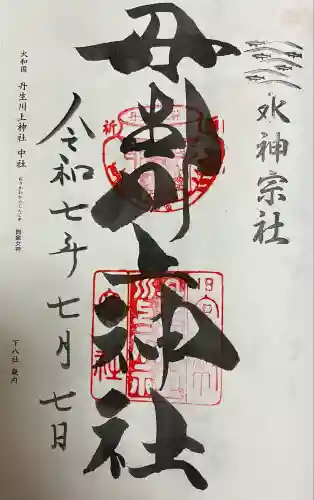 水神宗社
丹生川上神社
令和七年七月七日
大和国 丹生川上神社 中社
下八社 歳内